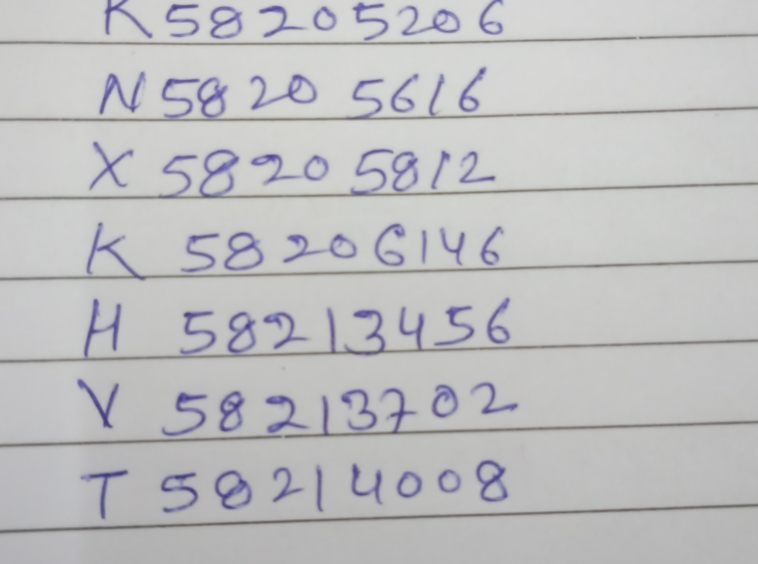 K 58205206
N 5820 5616
X 58205812
K 58206146
H 58213456
V 58213702
T 58214008